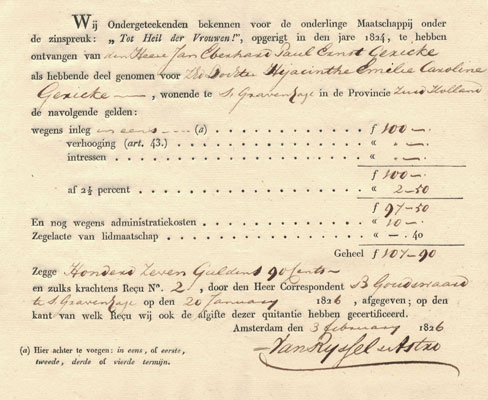 Wij Ondergeteekenden bekennen voor de onderlinge Maatschappij onder
de zinspreuk: „Tot Heil der Vrouwen!", opgerigt in den jare 1824, te hebben
ontvangen van den Heere Jan Eberhard Paul Ernst Gericke
als hebbende deel genomen voor Hyacinthe Emilie Caroline
Gericke —, wonende te s Gravenhage in de Provincie Zuid Holland
de navolgende gelden:
wegens inleg in eens (a) f 100 —.
verhooging (art. 43.) « „ —.
intressen « „ —.
f 100 —.
af 2½ percent « 2-50
f 97-50
En nog wegens administratiekosten « 10 —.
Zegelacte van lidmaatschap « —. 40
Geheel f 107-90
Zegge Honderd Zeven Guldens 90 Cents
en zulks krachtens Reçu N°. 2, door den Heer Correspondent B Goudswaard
te s Gravenhage op den 20 January 1826, afgegeven; op den
kant van welk Reçu wij ook de afgifte dezer quitantie hebben gecertificeerd.
Amsterdam den 3 february 1826
(a) Hier achter te voegen: in eens, of eerste,
tweede, derde of vierde termijn.